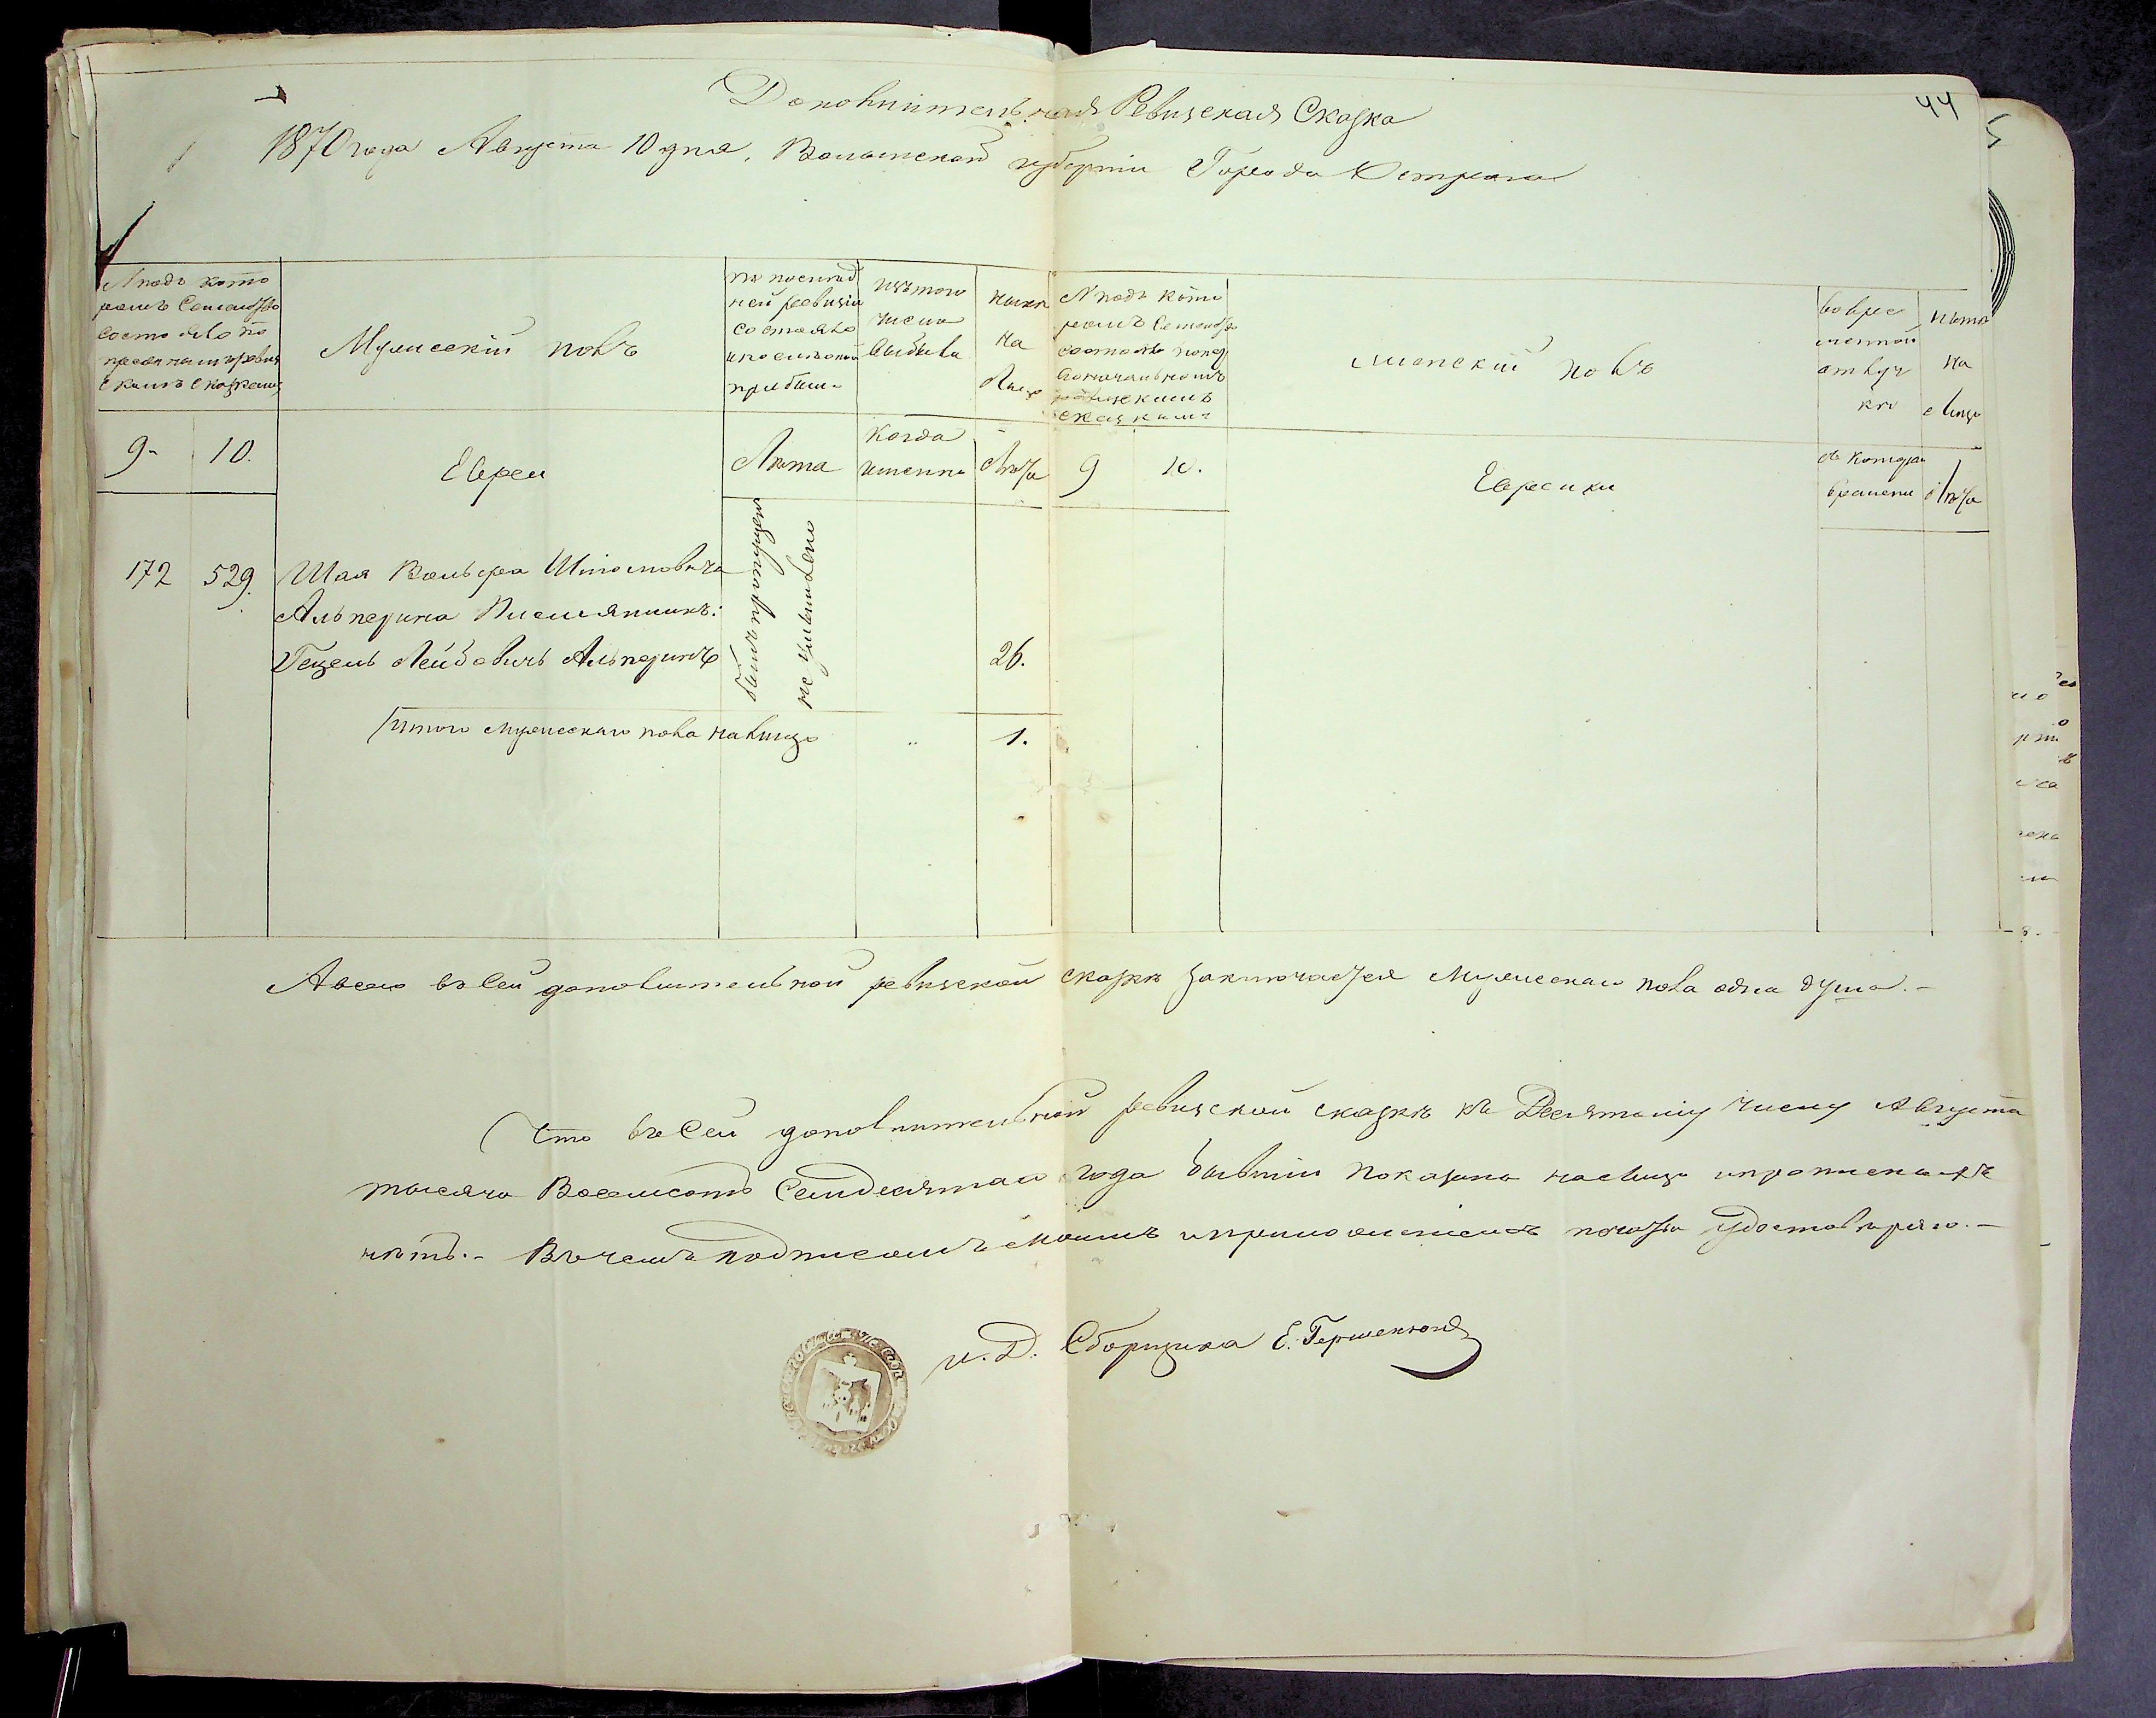 44
Дополнительная Ревизская Сказка
1870 года Августа 10 дня, Волынской губерніи Города Острога
№ подъ кото
рымъ Семейство
состояло по
ревиз
скимъ сказкамъ
Мужескій полъ
по послѣд
ней ревизіи
состояло
и послѣ оной
прибыло
изъ того
числа
выбыло
нынѣ
на
лицо
№ подъ кото
рымъ Семейство
состояло по
ревизскимъ
сказкамъ
женскій полъ
во врем
менной
отлуч
кѣ
нынѣ
на
лицо
9- 10.
Евреи
Лѣта
когда
именно
Лѣта
9 10.
Еврейки
съ котораго
времени
Лѣта
172 529. Шая Вольфа Шліомовича
Альперина Племянникъ:
Гецель Лейбовичъ Альперинъ 26.
былъ пропущенъ
Итого мужескаго пола на лицо „ 1.
А всего въ сей дополнительной ревизской сказкѣ заключается Мужескаго пола одна душа.-
Что въ сей дополнительной ревизской сказкѣ къ Десятому числу Августа
тысяча Восемсотъ Семдесятаго года бывшіи показаны на лицо и прописныхъ
нѣтъ.- Въ чемъ подписомъ моимъ и приложеніемъ печати удостовѣряю.-
И. Д. Сборщика Е. Гершензонъ